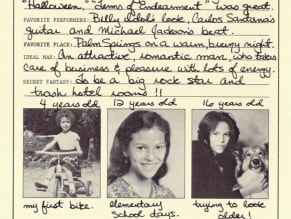 Halloween, "Terms of Endearment" was great.
FAVORITE PERFORMERS: Billy Idol's look, Carlos Santana's
guitar and Michael Jackson's beat.
FAVORITE PLACE: Palm Springs on a warm, breezy night.
IDEAL MAN: An attractive, romantic man, who takes
care of business & pleasure with lots of energy.
SECRET FANTASY: To be a big rock star and
trash hotel rooms!!
4 years old 12 years old 16 years old
my first bike. elementary school days. trying to look older!